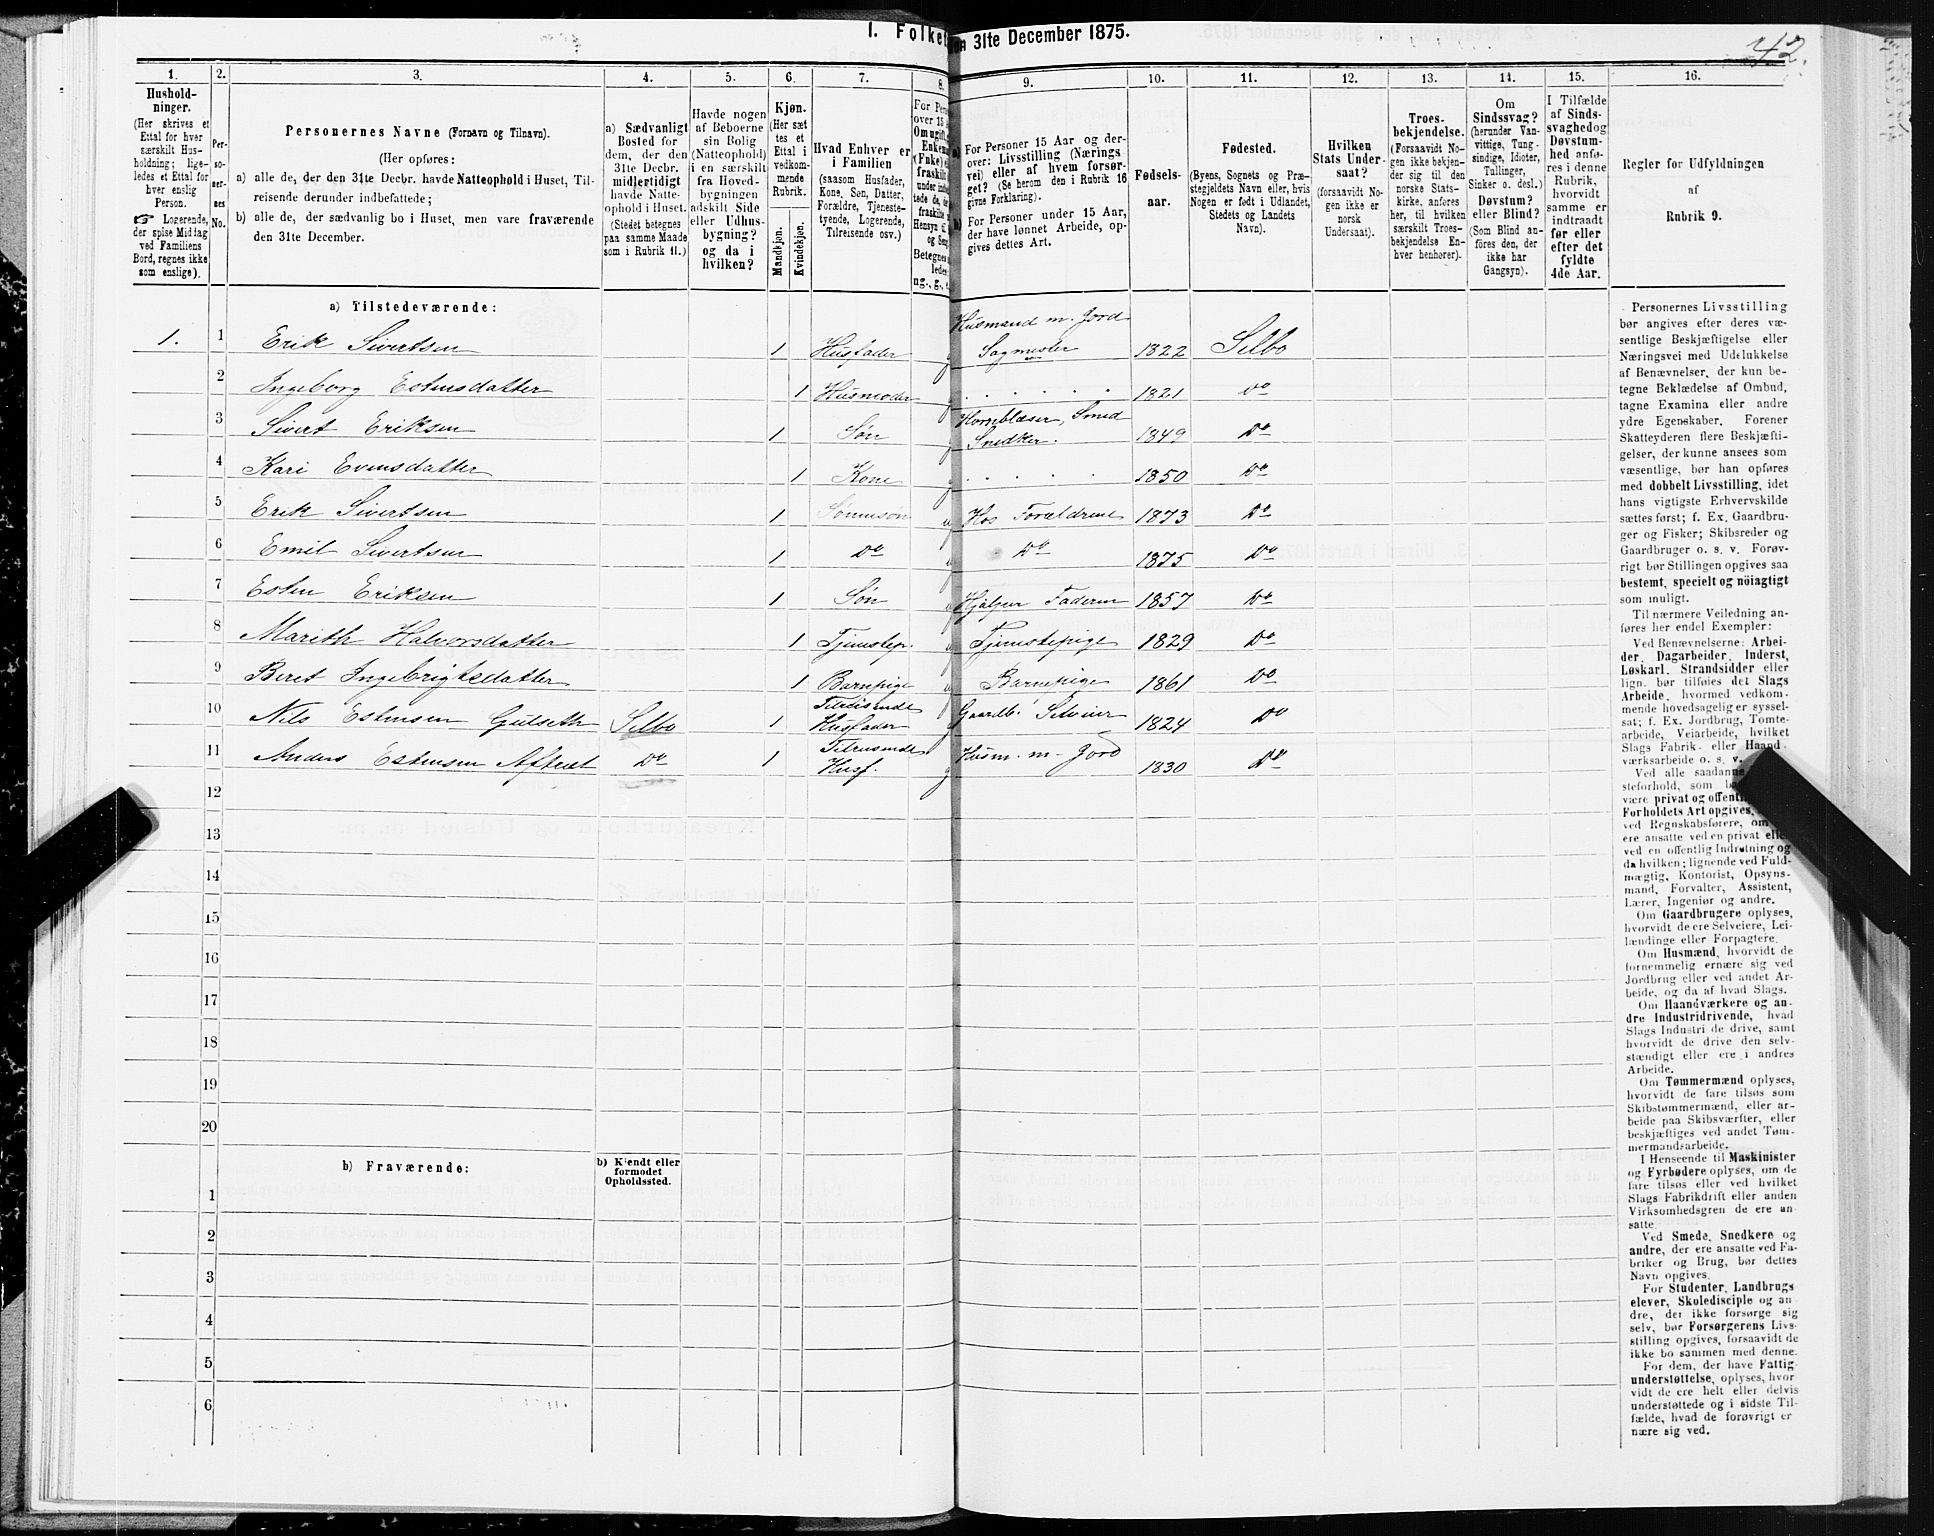 I. Folket
den 31te December 1875.
42.
1.
2.
3.
4.
5.
6.
7.
8.
9.
10.
11.
12.
13.
14.
15.
16.
Hushold-
ninger.
(Her skrives et
Ettal for hver
særskilt Hus-
holdning; lige-
ledes et Ettal for
hver enslig
Person.
☞ Logerende,
der spise Middag
ved Familiens
Bord, regnes ikke
som enslige).
Per-
so-
ner-
nes
No.
Personernes Navne (Fornavn og Tilnavn).
(Her opføres:
a) alle de, der den 31te Decbr. havde Natteophold i Huset, Til-
reisende derunder indbefattede;
b) alle de, der sædvanlig bo i Huset, men vare fraværende
den 31te December.
a) Sædvanligt
Bosted for
dem, der den
31te Decbr.
midlertidigt
havde Natte-
ophold i Huset.
(Stedet betegnes
paa samme Maade
som i Rubrik 11.)
Havde nogen
af Beboerne
sin Bolig
(Natteophold)
i en særskilt
fra Hoved-
bygningen
adskilt Side
eller Udhus-
bygning?
og da i
hvilken?
Kjøn.
(Her sæt
tes et
Ettal i
vedkom-
mende
Rubrik.
Mandkjøn.
Kvindekjøn.
Hvad Enhver er
i Familien
(saasom Husfader,
Kone, Søn, Datter,
Forældre, Tjeneste-
tyende, Logerende,
Tilreisende osv.)
For Pers
over 15
Om ugift,
Enkem
(Enke)
fraskilt
a)
For Personer 15 Aar og der-
over: Livsstilling (Nærings
vei) eller af hvem forsør-
get? (Se herom den i Rubrik 16
givne Forklaring).
b)
For Personer under 15 Aar,
der have lønnet Arbeide, op-
gives dettes Art.
Fødsels-
aar.
Fødested.
(Byens, Sognets og Præ-
stegjeldets Navn eller, hvis
Nogen er født i Udlandet,
Stedets og Landets
Navn).
Hvilken
Stats Under-
saat?
(forsaavidt No-
gen ikke er
norsk
Undersaat).
Troes-
bekjendelse.
(Forsaavidt No-
gen ikke bekjen-
der sig til den
norske Stats-
kirke, anføres
her, til hvilken
særskilt Troes-
bekjendelse En-
hver henhører).
Om
Sindssvag?
(herunder Van-
vittige, Tung-
sindige, Idioter,
Tullinger,
Sinker o. desl.)
Døvstum?
eller Blind?
(Som Blind an-
føres den, der
ikke har
Gangsyn).
I Tilfælde
af Sinds-
svaghedog
Døvstum-
hed anfø-
res i denne
Rubrik,
hvorvidt
samme er
indtraadt
før eller
efter det
fyldte
4de Aar.
Regler for Udfyldningen
af
Rubrik 9.
a) Tilstedeværende:
1. 1 Erik Sivertsen 1 Husfader g Husmand m. Jord Sagmester 1822 Selbo
2 Ingeborg Estensdatter 1 Husmoder g 1821 do
3 Sivert Eriksen 1 Søn g Hornblæser, Smed Snedker. 1849 Do
4 Kari Evensdatter 1 Kone g 1850 Do
5 Erik Sivertsen 1 Sønnesøn u Hos Forældrene 1873 Do
6 Emil Sivertsen 1 Do Do 1875 Do
7 Esten Eriksen 1 Søn u Hjælper Faderen 1857 Do
8 Marith Halvorsdatter 1 Tjenestep. u Tjenestepige 1829 Do
9 Beret Ingebrigtsdatter 1 Barnepige u Barnepige 1861 Do
10 Nils Estensen Gulseth Selbo 1 Tilreisende Husfader g Gaardb. Selveier 1824 Do
11 Anders Estensen Do 1 Husf. g Husm. m. Jord 1830 Do
12
13
14
15
16
17
18
19
20
b) Fraværende:
b) Kjendt eller
formodet
Opholdssted.
1
2
3
4
5
6
Personernes Livsstilling
bør angives efter deres væ-
sentlige Beskjæftigelse eller
Næringsvei med Udelukkelse
af Benævnelser, der kun be-
tegne Beklædelse af Ombud,
tagne Examina eller andre
ydre Egenskaber. Forener
Skatteyderen flere Beskjæfti-
gelser, der kunne ansees som
væsentlige, bør han opføres
med dobbelt Livsstilling, idet
hans vigtigste Erhvervskilde
sættes først; f. Ex. Gaardbru-
ger og Fisker; Skibsreder og
Gaardbruger o. s. v. Forøv-
rigt bør Stillingen opgives saa
bestemt, specielt og nöiagtigt
som muligt.
Til nærmere Veiledning an-
føres her endel Exempler:
Ved Benævnelserne: Arbei-
der, Dagarbeider, Inderst,
Løskarl, Strandsidder eller
lign. bør tilføies det Slags
Arbeide, hvormed vedkom-
mende hovedsagelig er syssel-
sat; f. Ex. Jordbrug, Tomte-
arbeide, Veiarbeide, hvilket
Slags Fabrik- eller Haand-
værksarbeide o. s. v.
Ved alle saadanne
steforhold, som
være privat og offentlig
Forholdets Art opgives,
ved Regnskabsførere, om
ere ansatte ved en privat eller
ved en offentlig Indretning og
da hvilken; lignende ved Fuld-
mægtig, Kontorist, Opsyns-
mand, Forvalter, Assistent,
Lærer, Ingeniør og andre.
Om Gaardbrugere oplyses,
hvorvidt de ere Selveiere, Lei-
lændinge eller Forpagtere.
Om Husmænd, hvorvidt de
fornemmelig ernære sig ved
Jordbrug eller ved andet Ar-
beide, og da af hvad Slags.
Om Haandværkere og an-
dre Industridrivende, hvad
Slags Industri de drive, samt
hvorvidt de drive den selv-
stændigt eller ere i andres
Arbeide.
Om Tømmermænd oplyses,
hvorvidt de fare tilsøs som
Skibstømmermænd, eller ar-
beide paa Skibsværfter, eller
beskjæftiges ved andet Tøm-
mermandsarbeide.
I Henseende til Maskinister
og Fyrbødere oplyses, om de
fare tilsøs eller ved hvilket
Slags Fabrikdrift eller anden
Virksomhedsgren de ere an-
satte.
Ved Smede, Snedkere og
andre, der ere ansatte ved Fa-
briker og Brug, bør dettes
Navn opgives.
For Studenter, Landbrugs
elever, Skoledisciple og an-
dre, der ikke forsørge sig
selv, bør Forsørgerens Livs-
stilling opgives, forsaavidt de
ikke bo sammen med denne.
For dem, der have Fattig-
understøttelse, oplyses, hvor-
vidt de ere helt eller delvis
understøttede og i sidste Til-
fælde, hvad de forøvrigt er
nære sig ved.